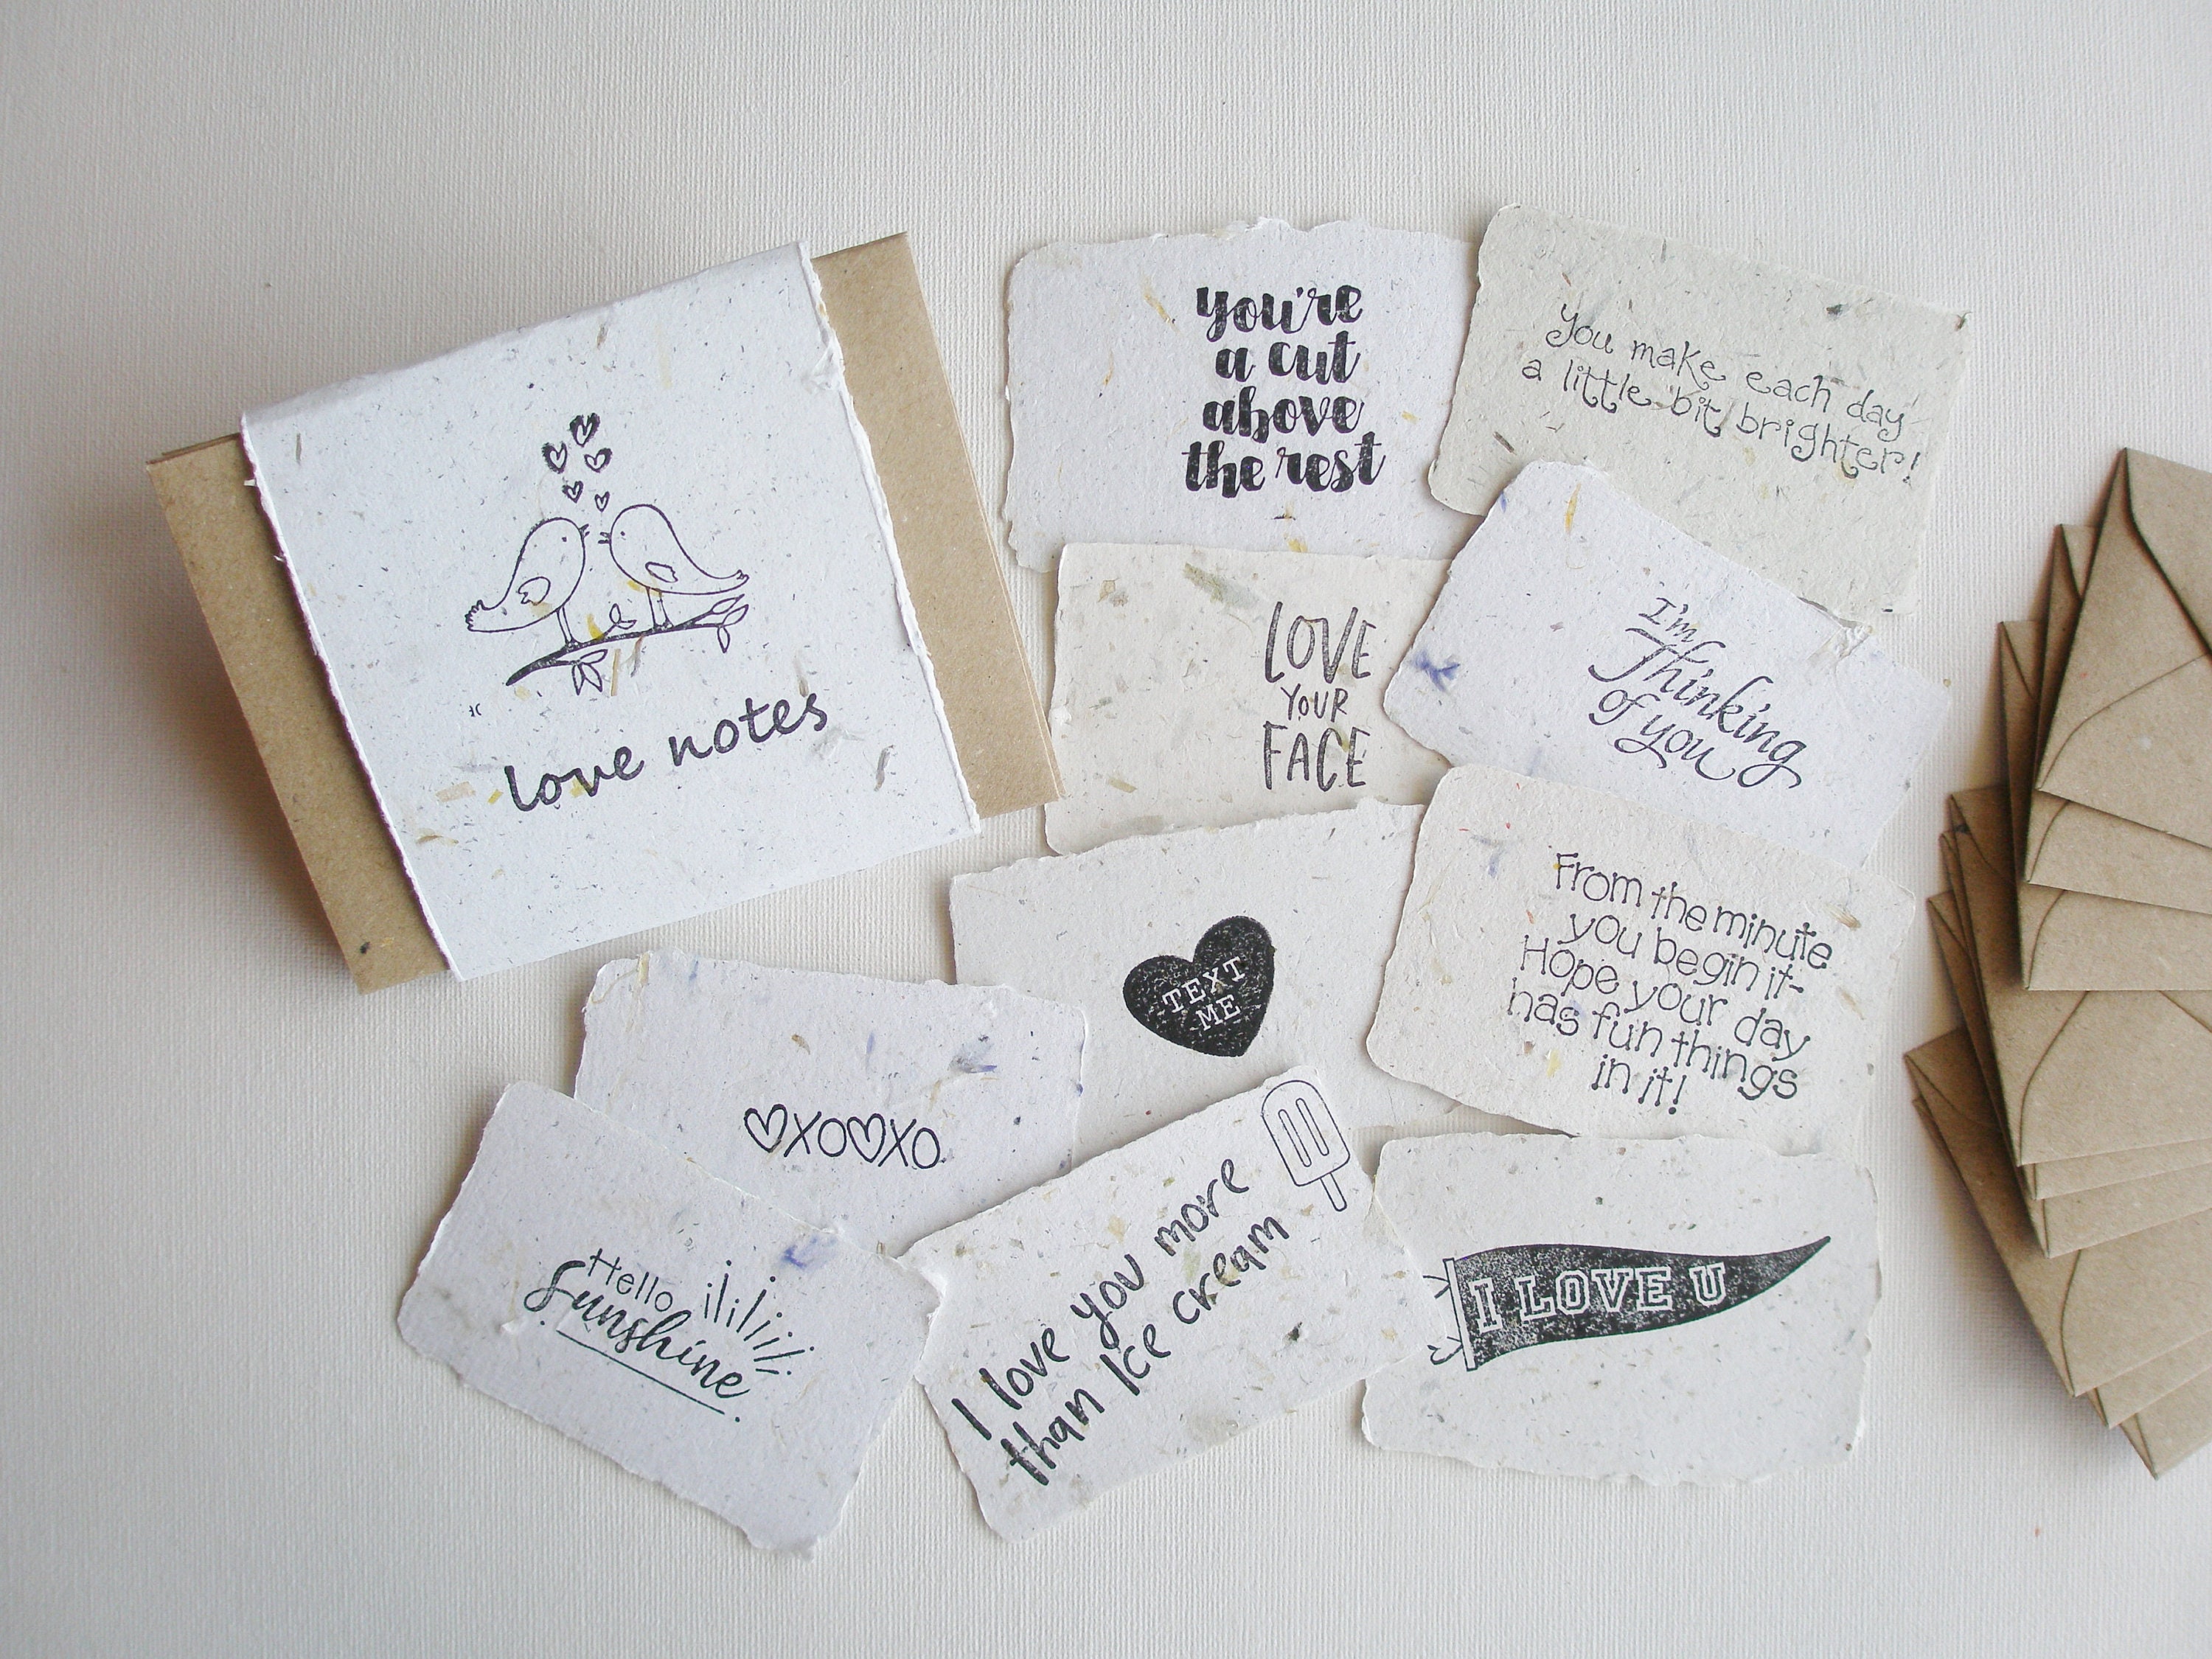 love notes
you're
a cut
above
the rest
You make each day
a little bit brighter!
LOVE
YOUR
FACE
I'm
Thinking
of you
TEXT
ME
From the minute
you begin it-
Hope your day
has fun things
in it!
♡XO♡XO
Hello
Sunshine
I love you more
than Ice cream
I LOVE U